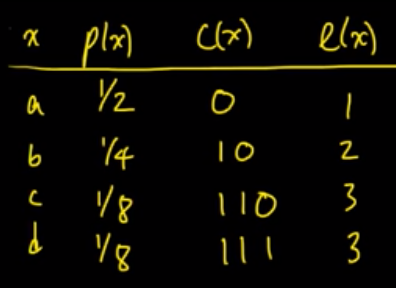 x p(x) C(x) l(x)
a 1/2 0 1
b 1/4 10 2
c 1/8 110 3
d 1/8 111 3